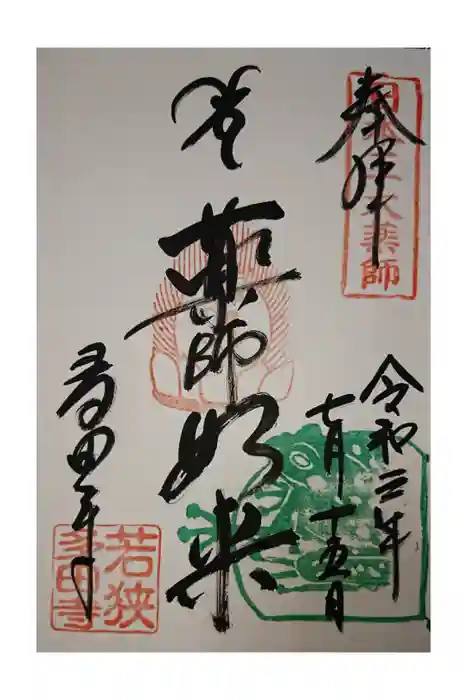 奉拝
日本三大薬師
令和三年
七月十五日
薬師如来
多田寺
若狭
多田寺